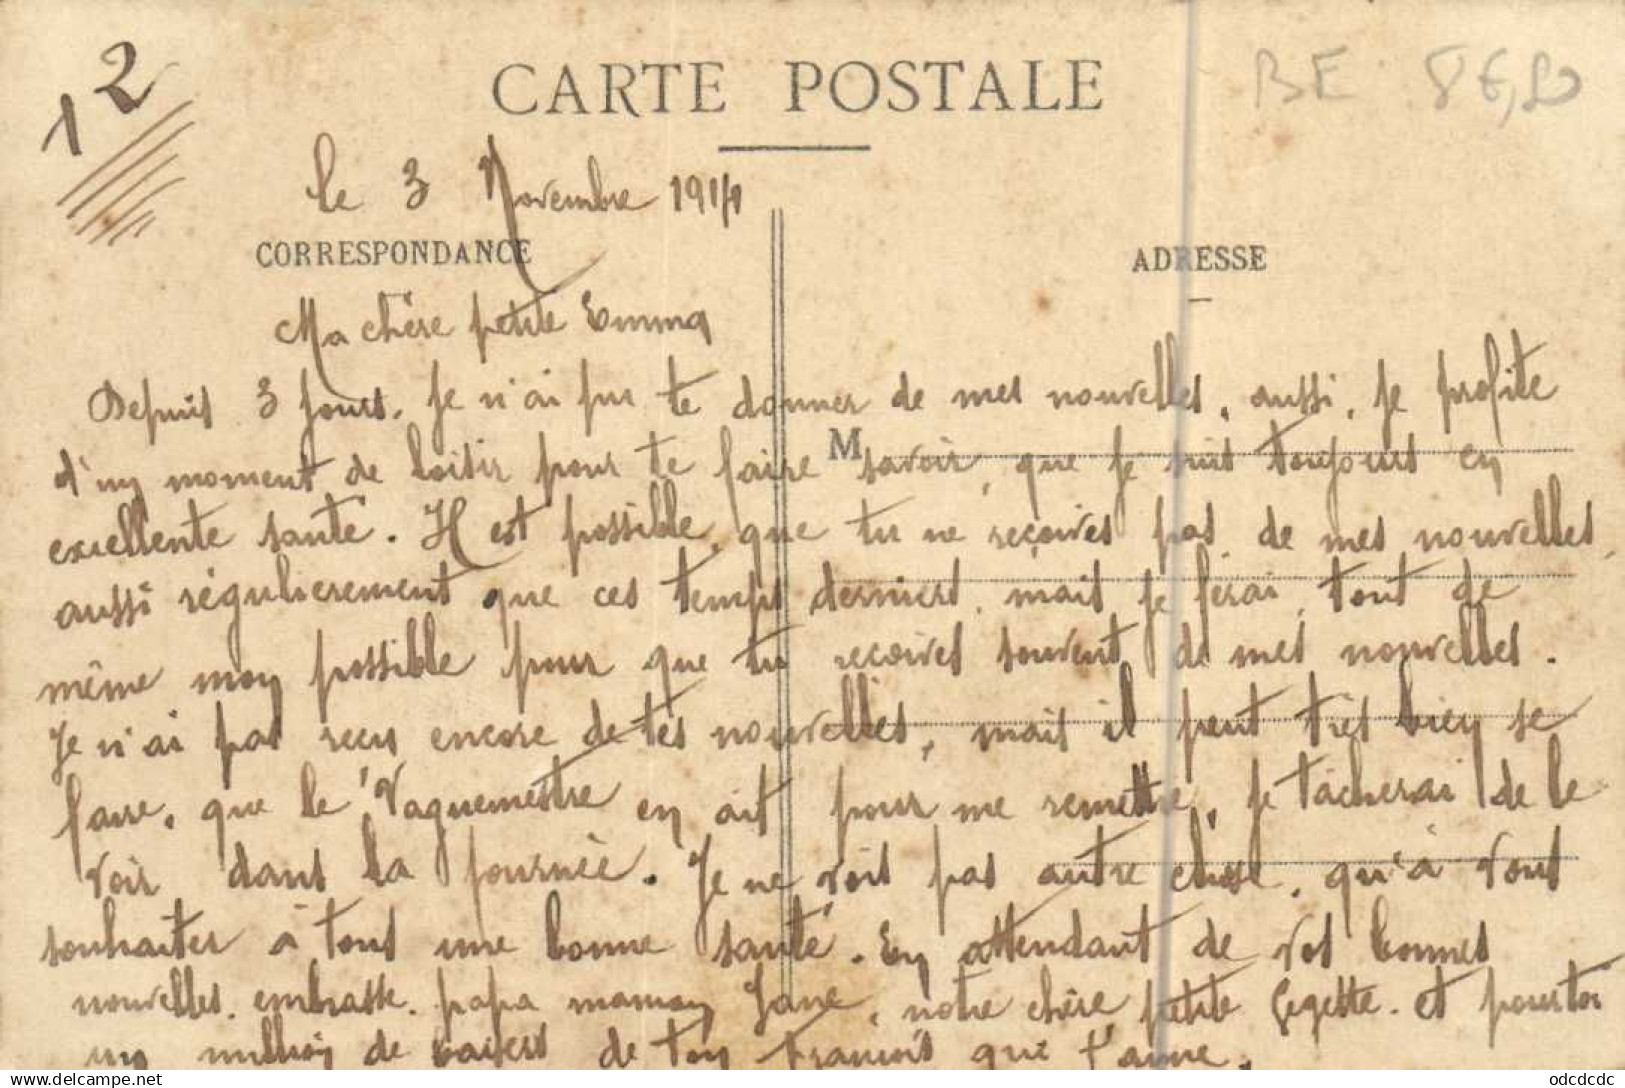 12
CARTE POSTALE
BE
le 3 Novembre 1914
CORRESPONDANCE
ADRESSE
Ma chère petite Emma
Depuis 3 jours, je n'ai pu te donner de mes nouvelles, aussi, je profite
M
d'un moment de loisir pour te faire savoir, que je suis toujours en
excellente santé. Il est possible, que tu ne reçoives pas de mes nouvelles,
aussi régulièrement que ces temps derniers, mais je ferai, tout de
même mon possible pour que tu reçoives souvent de mes nouvelles.
Je n'ai pas reçu encore de tes nouvelles, mais il peut très bien se
faire, que le Vaguemestre en ait pour me remettre, je tâcherai de le
voir dans la journée. Je ne vois pas autre chose, qu'à vous
souhaiter à tous une bonne santé. En attendant de vos bonnes
nouvelles, embrasse, papa maman Jane, notre chère petite Gigette. et pour toi
un million de baisers de ton François que t'aime.
delcampe.net
odcdcdc